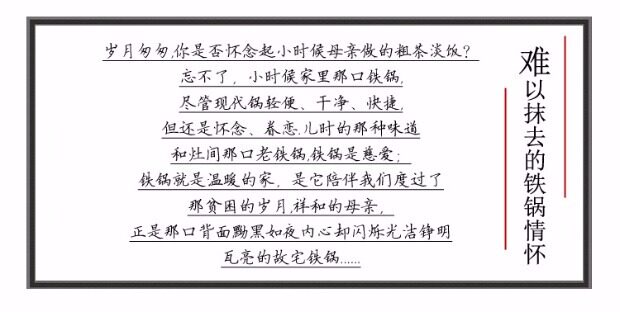 岁月匆匆,你是否怀念起小时候母亲做的粗茶淡饭?
忘不了，小时候家里那口铁锅,
尽管现代锅轻便、干净、快捷,
但还是怀念、眷恋.儿时的那种味道
和灶间那口老铁锅,铁锅是慈爱；
铁锅就是温暖的家，是它陪伴我们度过了
那贫困的岁月,祥和的母亲，
正是那口背面黝黑如夜内心却闪烁光洁铮明
瓦亮的故宅铁锅......
难以抹去的铁锅情怀